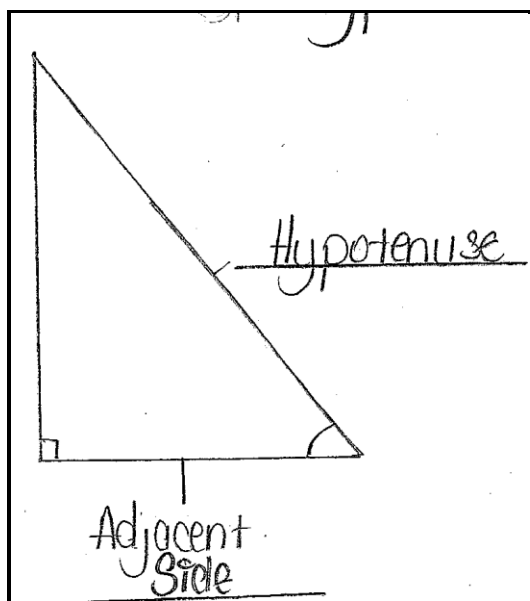 Hypotenuse
Adjacent
Side